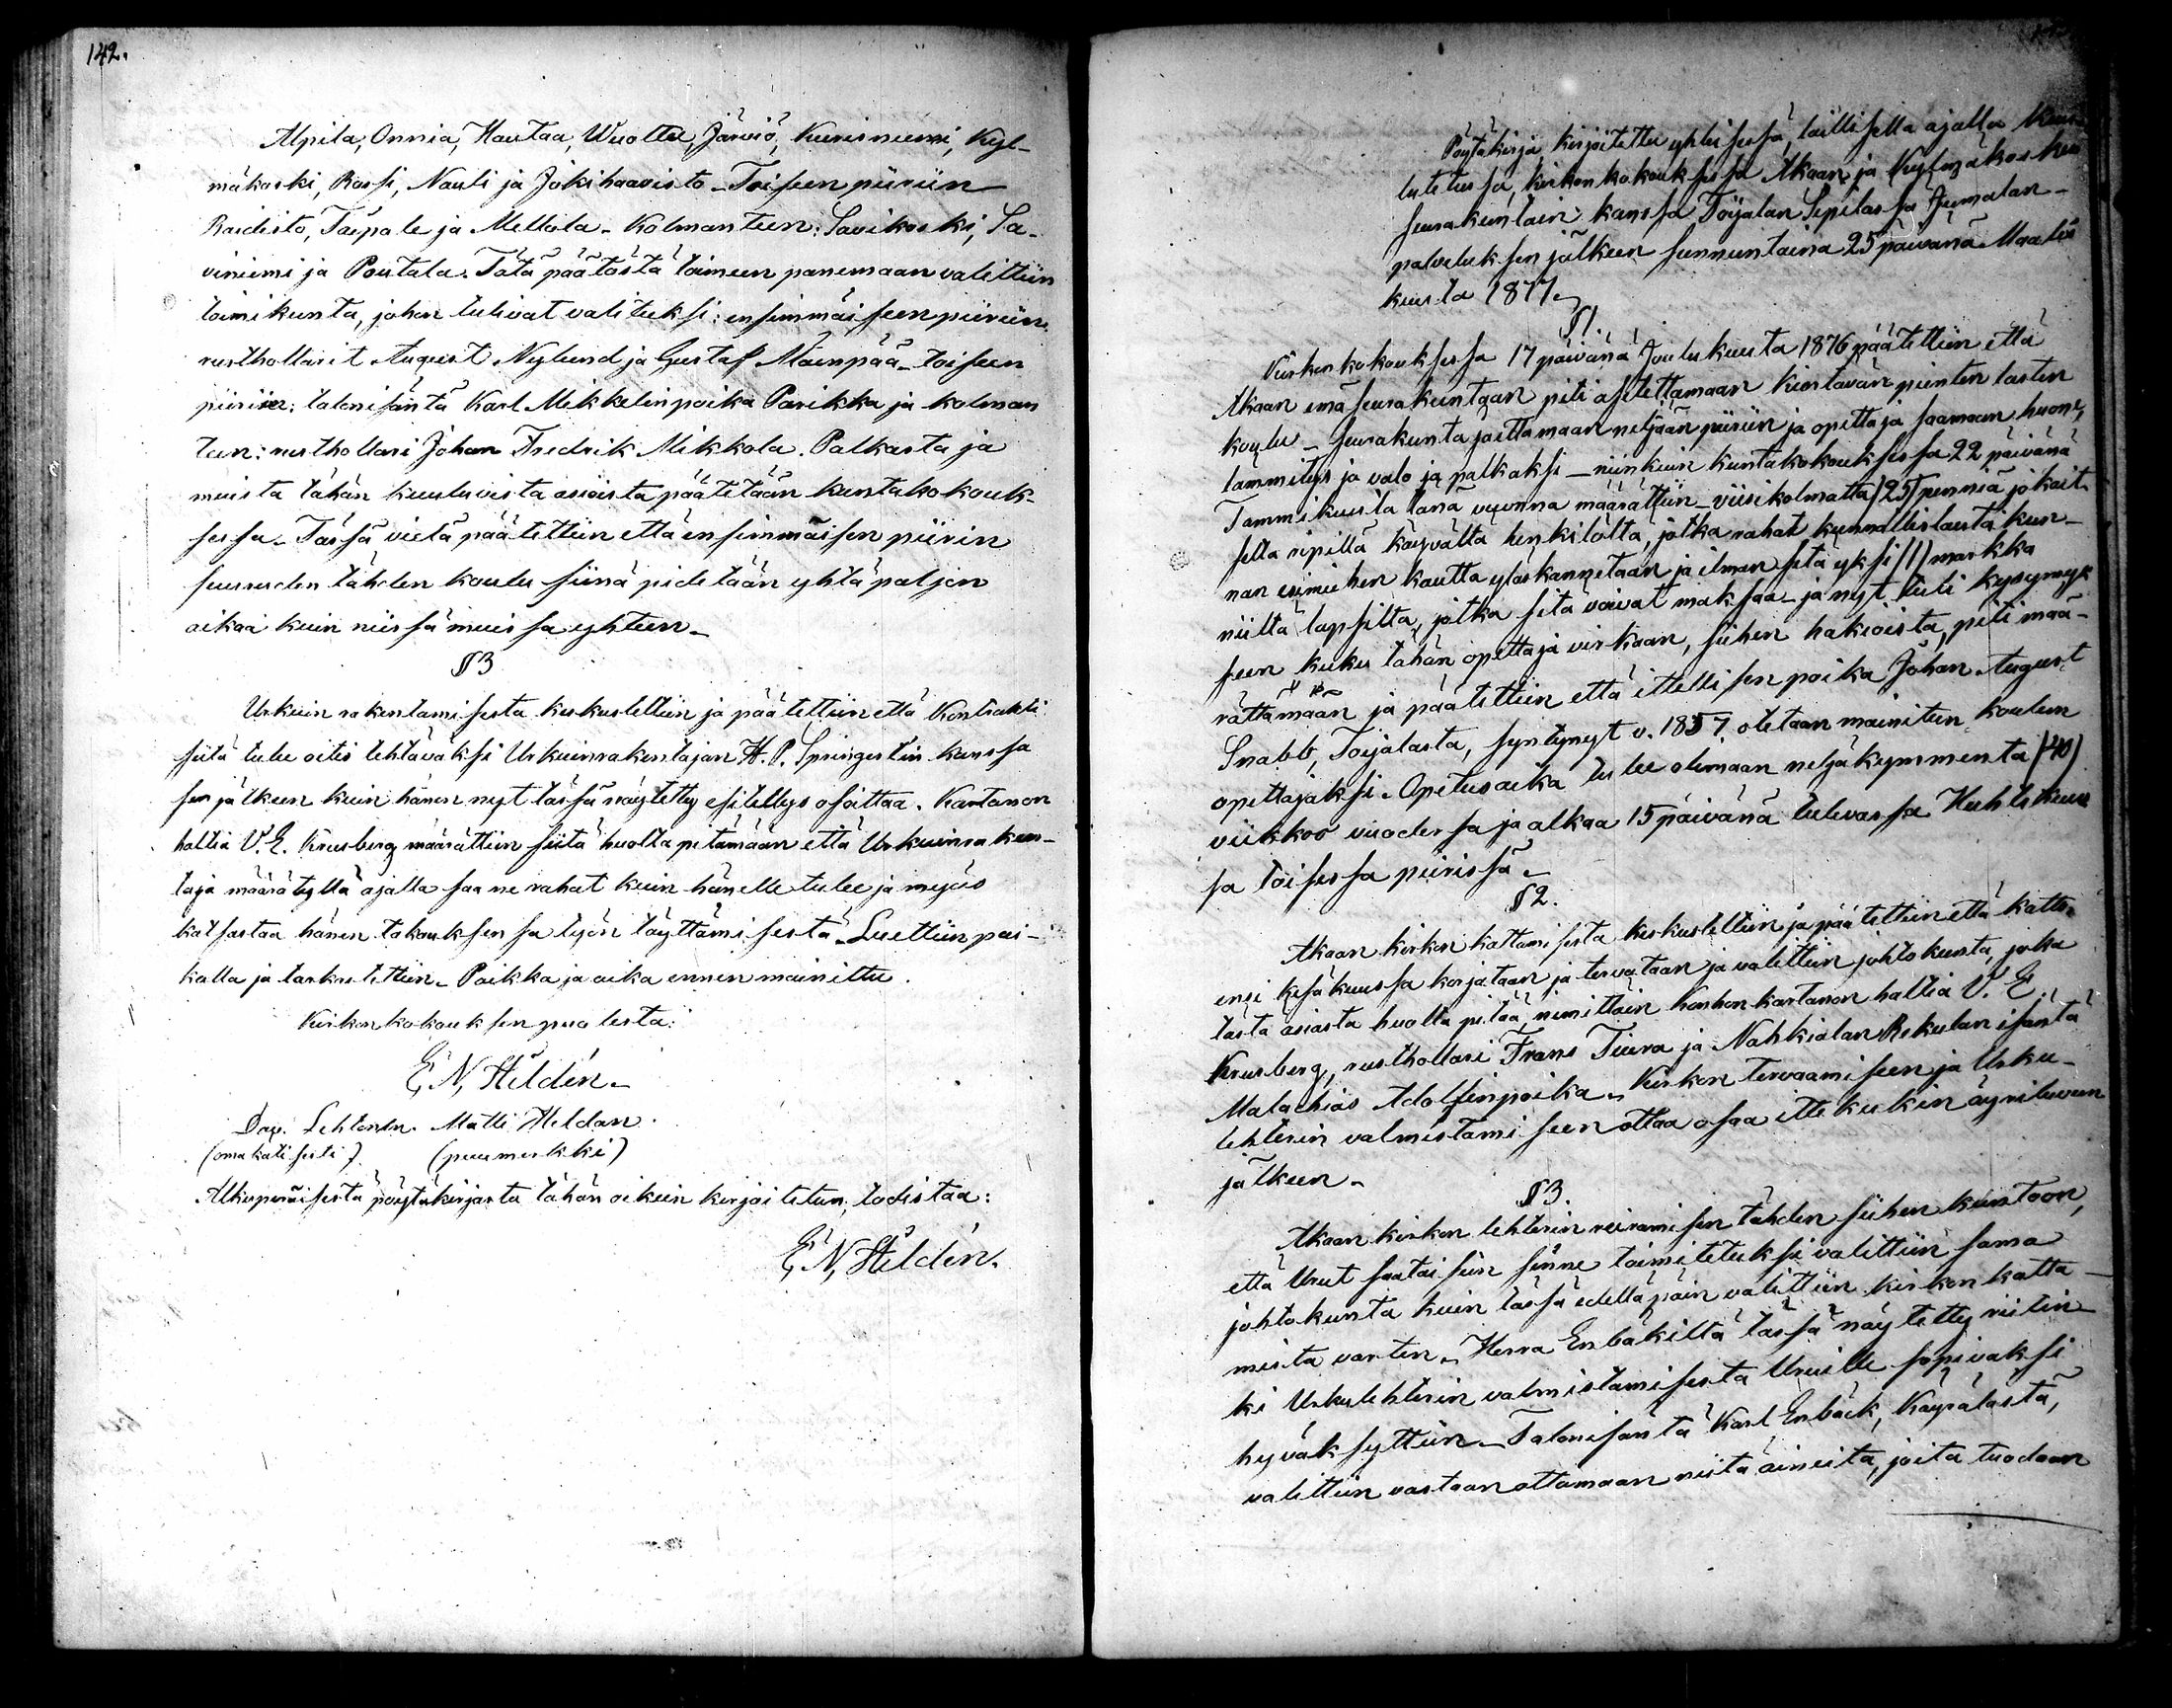 142.
Alpila, Onnia, Hautaa, Wuoltee, Järviö, Kurisniemi, Kyl-
mäkoski, Rassi, Nauli ja Jokihaavisto - Toiseen piiriin
Raidisto, Taipale ja Mellola - Kolmanteen: Savikoski, Sa-
viniemi ja Pontala. Tätä päätöstä toimeen panemaan valittiin
toimikunta, johon tulivat valituksi: ensimmäiseen piiriin:
rusthollarit August Nylund ja Gustaf Mäenpää - toiseen
piiriin: talonisäntä Karl Mikkelinpoika Parikka ja kolman
teen: rusthollari Johan Fredrik Mikkola. Palkasta ja
muista tähän kuuluvista asioista päätetään kuntakokouk-
sessa. Tässä vielä päätettiin että ensimmäisen piirin
suuruden tähden koulu siinä pidetään yhtä paljon
aikaa kuin niissä muissa yhteen.
§3
Urkuin rakentamisesta keskusteltiin ja päätettiin että Kontrahti
siitä tulee oitis tehtäväksi Urkuinrakentajan H. P. Springertin kanssa
sen jälkeen kuin hänen nyt tässä näytetty esitellys osoittaa. Kartanon
haltia V. E. Krusberg määrättiin siitä huolta pitämään että Urkuinraken-
taja määrätyllä ajalla saa ne rahat kuin hänelle tulee ja myös
katsastaa hänen takauksensa työn täyttämisestä. Luettiin pai-
kalla ja tarkastettiin. Paikka ja aika ennen mainittu.
Kirkonkokouksen puolesta:
E, N, Hildén.
Dav. Lehtonen. Matti Heldan.
(omakätisesti). (puumerkki)
Alkuperäisestä pöytäkirjasta tähän oikein kirjoitetun, todistaa:
E, N, Hildén.
Pöytäkirja, kirjoitettu yhteisessä, laillisella ajalla kuu-
lutetussa, kirkonkokouksessa Akaan ja Kylmäkosken
seurakuntain kanssa Toijalan Sepilässä Jumalan-
palveluksen jälkeen sunnuntaina 25 päivänä Maalis
kuuta 1877.
§1.
Kirkonkokouksessa 17 päivänä Joulukuuta 1876 päätettiin että
Akaan emäseurakuntaan piti asetettamaan kiertävän pienten lasten
koulu - seurakunta jaettamaan neljään piiriin ja opettaja saamaan huone,
lämmitys ja valo ja palkaksi - niinkuin kuntakokouksessa 22 päivänä
Tammikuuta tänä vuonna määrättiin - viisikolmatta (25) penniä jokait-
selta ripillä käyvältä henkilöltä, jotka rahat kunnallislautakun-
nan esimiehen kautta ylöskannetaan ja ilman sitä yksi (1) markka
niiltä lapsilta, jotka sitä voivat maksaa - ja nyt tuli kysymyk
seen kuka tähän opettaja virkaan, siihen hakioista, piti mää-
rättämään ja päätettiin että itellisen poika Johan August
Snabb, Toijalasta, syntynyt v. 1857, otetaan mainitun koulun
opettajaksi. Opetusaika tulee olemaan neljäkymmentä (40)
viikkoo vuodessa ja alkaa 15 päivänä tulevassa Huhtikuus
sa toisessa piirissä.
§2.
Akaan kirkon kattamisesta keskusteltiin ja päätettiin että katto
ensi kesäkuussa korjataan ja tervataan ja valittiin johtokunta, joka
tästä asiasta huolta pitää, nimittäin Konhon kartanon haltia V. E.
Krusberg, rusthollari Frans Tiura ja Nahkialan Rekulan isäntä
Malachias Adolfinpoika. Kirkon tervaamiseen ja Urku-
lehterin valmistamiseen ottaa osaa itte kukin äyriluvun
jälkeen.
§3.
Akaan kirkon lehterin reiramisen tähden siihen kuntoon,
että Urut saataisiin sinne toimitetuksi valittiin sama
johtokunta kuin tässä edelläpäin valittiin kirkon katta-
mista varten. Herra Enbäkiltä tässä näytetty riitin-
ki Urkulehterin valmistamisesta Uruille sopivaksi
hyväksyttiin. Talonisäntä Karl Enbäck, Käpälästä,
valittiin vastaanottamaan niitä aineita, joita tuodaan